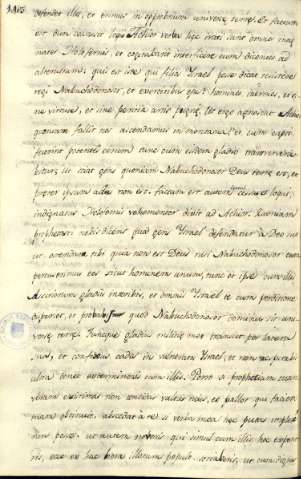 defendet illos, et erimus in opprobrium universæ terræ. Et factum
est cum cessasset loqui Achior verba hæc irati sunt omnes mag
nates Holofernis, et cogitabant interficere eum dicentes ad
alterutrum: quis est iste qui filios Israel posse dicat resistere
regi Nabuchodonosor, et exercitibus eius? homines inermes, et si
ne virtute, et sine peritia artis pugnæ. Ut ergo agnoscat Achior
quoniam fallit nos ascendamus in montana: et cum capti
fuerint potentes eorum tunc cum eisdem gladio transverbera
bitur: ut sciat gens quoniam Nabuchodonosor Deus terræ est, et
præter ipsum alius non est. factum est autem cum loqui
indignatus Holofernis vehementer dixit ad Achior: Quoniam
prophetasti nobis dicens quod gens Israel defendatur a Deo suo
ut ostendam tibi quia non est Deus nisi Nabuchodonosor cum
percusserimus eos sicut hominem unum, tunc et ipse cum illis
Assiriorum gladio interibis, et omnis Israel tecum perditione
disperiet, et probabis quod Nabuchodonosor dominus sit uni
versæ terræ. Tuncque gladius militiæ meæ transiet per latera
tua, et confixus cades in vulneratos Israel, et non respirabis
ultra donec extermineris cum illis. Porro si prophetiam tuam
veram existimas non concidat vultus tuus, et pallor qui faciem
tuam obtinet, abscedat a te si verba mea hæc putas impleri
non posse. ut autem noveris quia simul cum illis hæc experie
ris, ecce ex hac hora illorum populo sociaberis, ut cum dignas